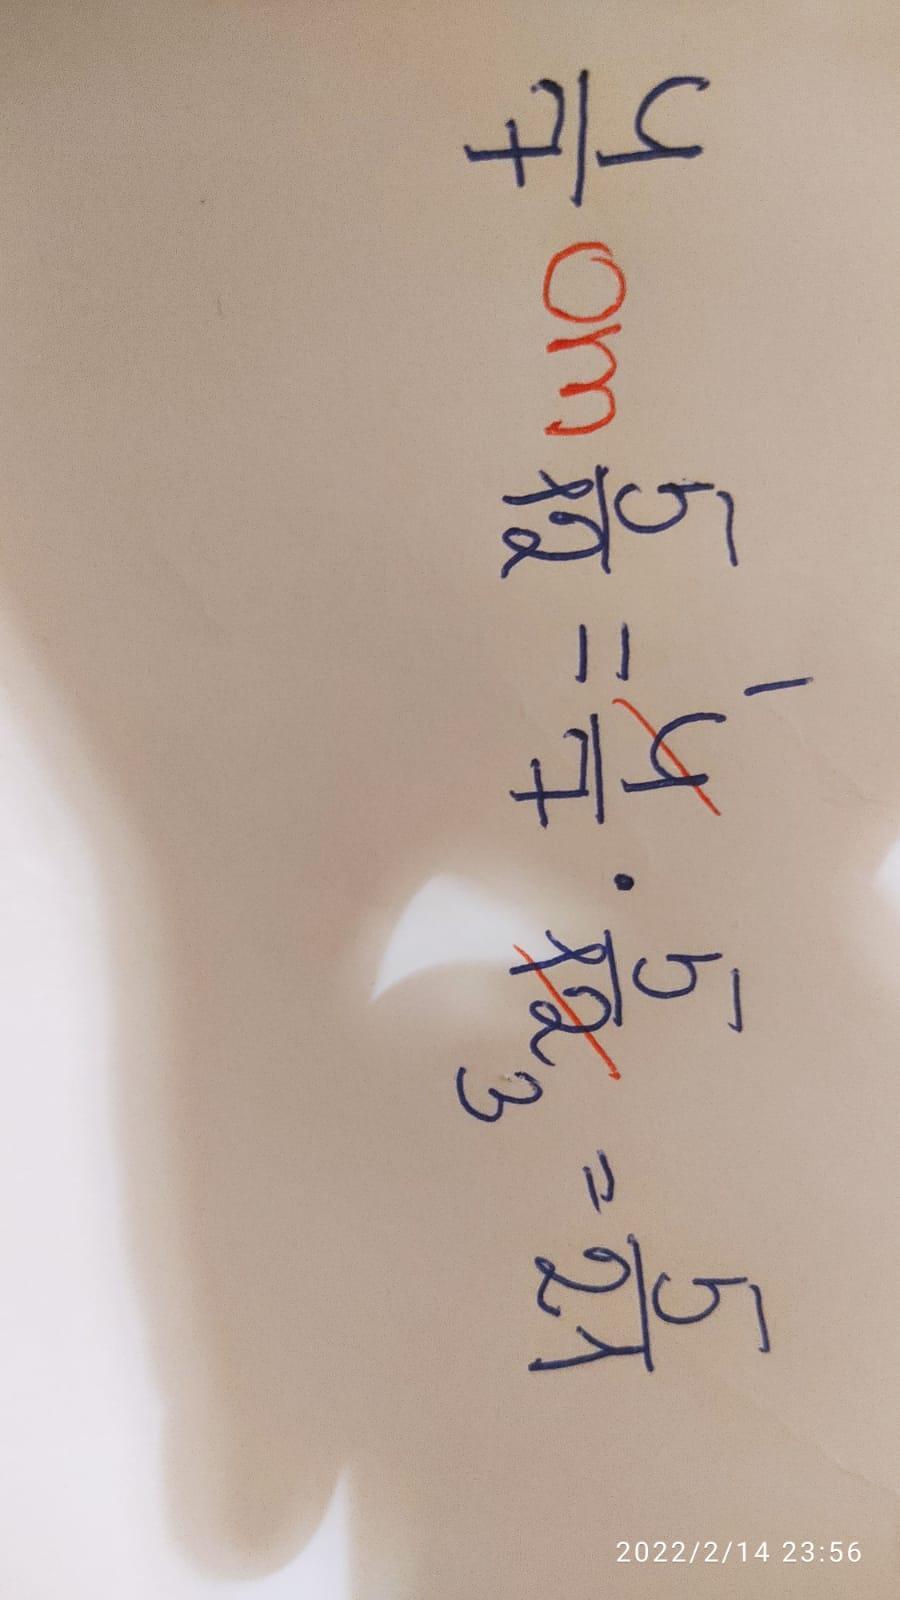 4/7 om 5/12 = 4/7 · 5/12 = 5/21
1
3
2022/2/14 23:56